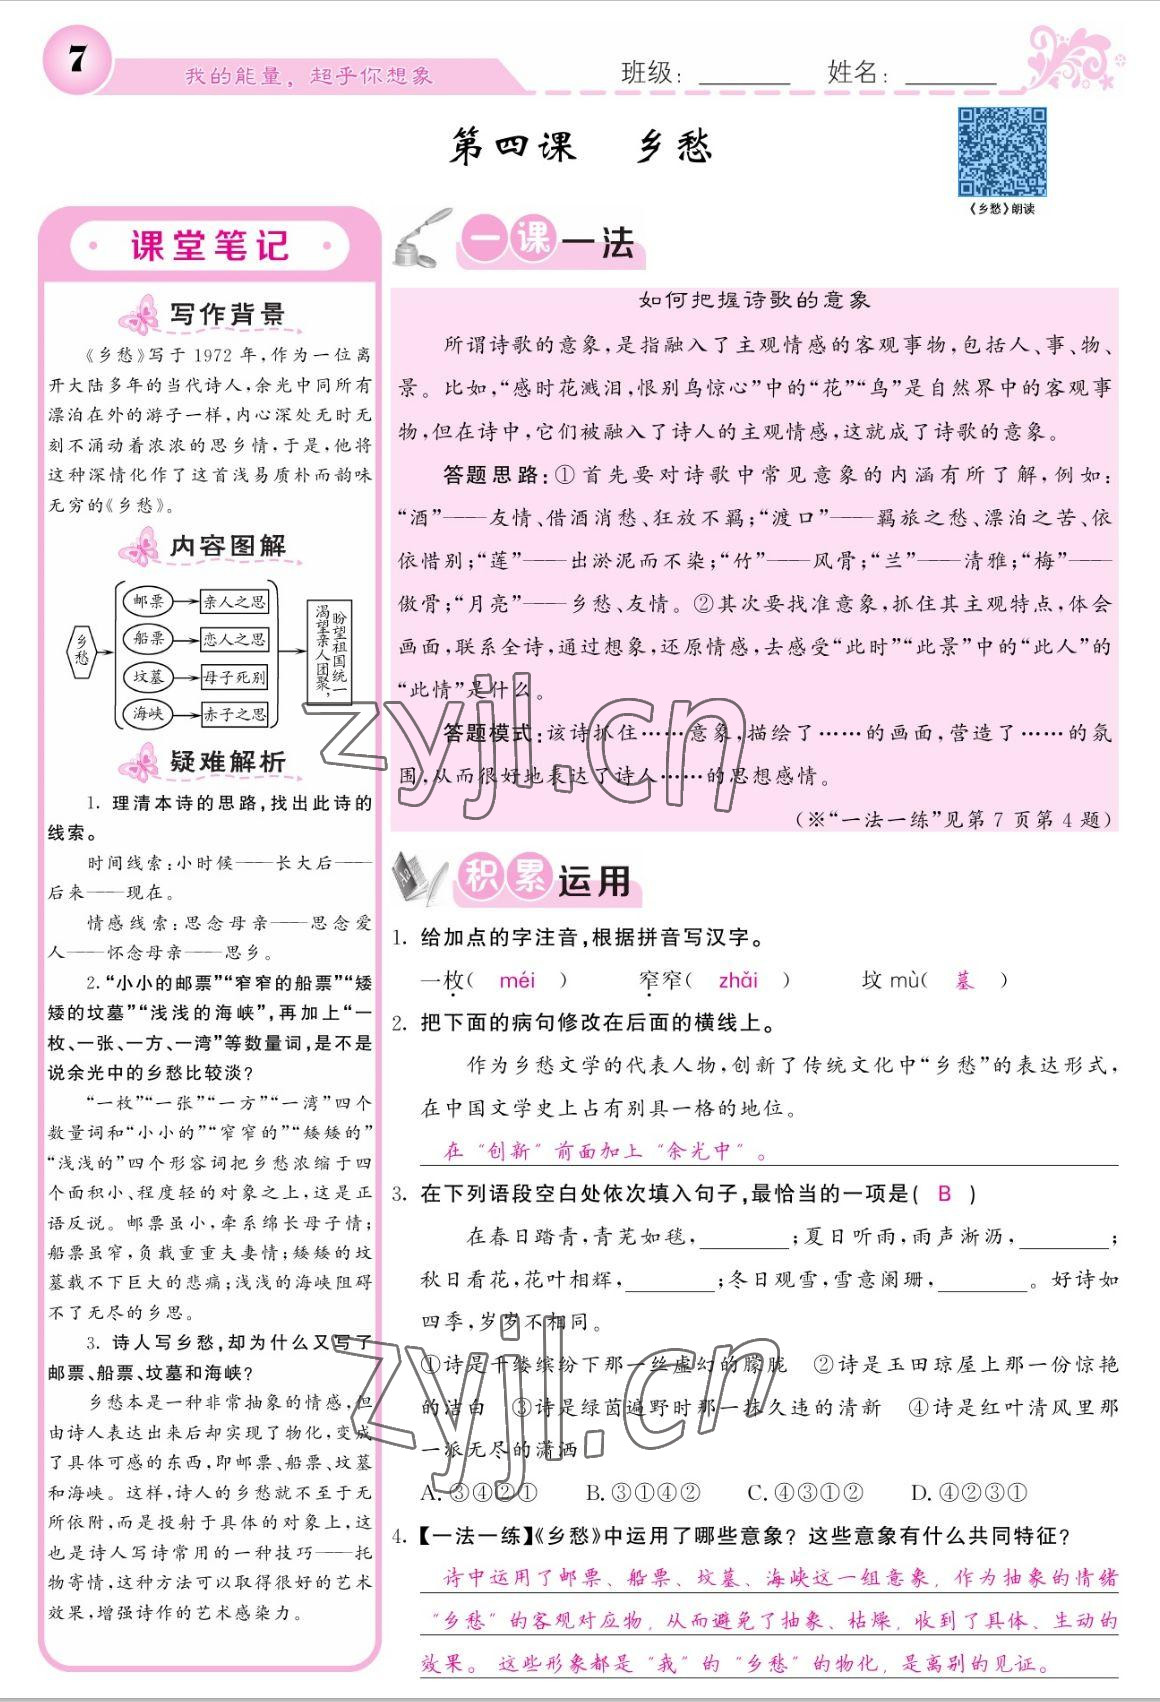 7
我的能量，超乎你想象
班级：
姓名：
第四课 乡愁
《乡愁》朗读
课堂笔记
写作背景
《乡愁》写于 1972 年，作为一位离
开大陆多年的当代诗人，余光中同所有
漂泊在外的游子一样，内心深处无时无
刻不涌动着浓浓的思乡情，于是，他将
这种深情化作了这首浅易质朴而韵味
无穷的《乡愁》。
内容图解
乡愁
邮票
亲人之思
船票
恋人之思
坟墓
母子死别
海峡
赤子之思
渴望亲人团聚，
盼望祖国统一
疑难解析
1. 理清本诗的思路，找出此诗的
线索。
时间线索：小时候——长大后——
后来——现在。
情感线索：思念母亲——思念爱
人——怀念母亲——思乡。
2. “小小的邮票”“窄窄的船票”“矮
矮的坟墓”“浅浅的海峡”，再加上“一
枚、一张、一方、一湾”等数量词，是不是
说余光中的乡愁比较淡？
“一枚”“一张”“一方”“一湾”四个
数量词和“小小的”“窄窄的”“矮矮的”
“浅浅的”四个形容词把乡愁浓缩于四
个面积小、程度轻的对象之上，这是正
语反说。邮票虽小，牵系绵长母子情；
船票虽窄，负载重重夫妻情；矮矮的坟
墓载不下巨大的悲痛；浅浅的海峡阻碍
不了无尽的乡思。
3. 诗人写乡愁，却为什么又写了
邮票、船票、坟墓和海峡？
乡愁本是一种非常抽象的情感，但
由诗人表达出来后却实现了物化，变成
了具体可感的东西，即邮票、船票、坟墓
和海峡。这样，诗人的乡愁就不至于无
所依附，而是投射于具体的对象上，这
也是诗人写诗常用的一种技巧——托
物寄情，这种方法可以取得很好的艺术
效果，增强诗作的艺术感染力。
一课一法
如何把握诗歌的意象
所谓诗歌的意象，是指融入了主观情感的客观事物，包括人、事、物、
景。比如，“感时花溅泪，恨别鸟惊心”中的“花”“鸟”是自然界中的客观事
物，但在诗中，它们被融入了诗人的主观情感，这就成了诗歌的意象。
答题思路：①首先要对诗歌中常见意象的内涵有所了解，例如：
“酒”——友情、借酒消愁、狂放不羁；“渡口”——羁旅之愁、漂泊之苦、依
依惜别；“莲”——出淤泥而不染；“竹”——风骨；“兰”——清雅；“梅”——
傲骨；“月亮”——乡愁、友情。②其次要找准意象，抓住其主观特点，体会
画面，联系全诗，通过想象，还原情感，去感受“此时”“此景”中的“此人”的
“此情”是什么。
答题模式：该诗抓住……意象，描绘了……的画面，营造了……的氛
围，从而很好地表达了诗人……的思想感情。
（※“一法一练”见第 7 页第 4 题）
积累运用
1. 给加点的字注音，根据拼音写汉字。
一枚（ méi ） 窄窄（ zhǎi ） 坟 mù（ 墓 ）
2. 把下面的病句修改在后面的横线上。
作为乡愁文学的代表人物，创新了传统文化中“乡愁”的表达形式，
在中国文学史上占有别具一格的地位。
在“创新”前面加上“余光中”。
3. 在下列语段空白处依次填入句子，最恰当的一项是（ B ）
在春日踏青，青芜如毯，________；夏日听雨，雨声淅沥，________；
秋日看花，花叶相辉，________；冬日观雪，雪意阑珊，________。好诗如
四季，岁岁不相同。
①诗是千缕缤纷下那一丝虚幻的朦胧 ②诗是玉田琼屋上那一份惊艳
的洁白 ③诗是绿茵遍野时那一抹久违的清新 ④诗是红叶清风里那
一派无尽的潇洒
A. ③④②① B. ③①④② C. ④③①② D. ④②③①
4. 【一法一练】《乡愁》中运用了哪些意象？这些意象有什么共同特征？
诗中运用了邮票、船票、坟墓、海峡这一组意象，作为抽象的情绪
“乡愁”的客观对应物，从而避免了抽象、枯燥，收到了具体、生动的
效果。这些形象都是“我”的“乡愁”的物化，是离别的见证。
zyjl.cn
zyjl.cn